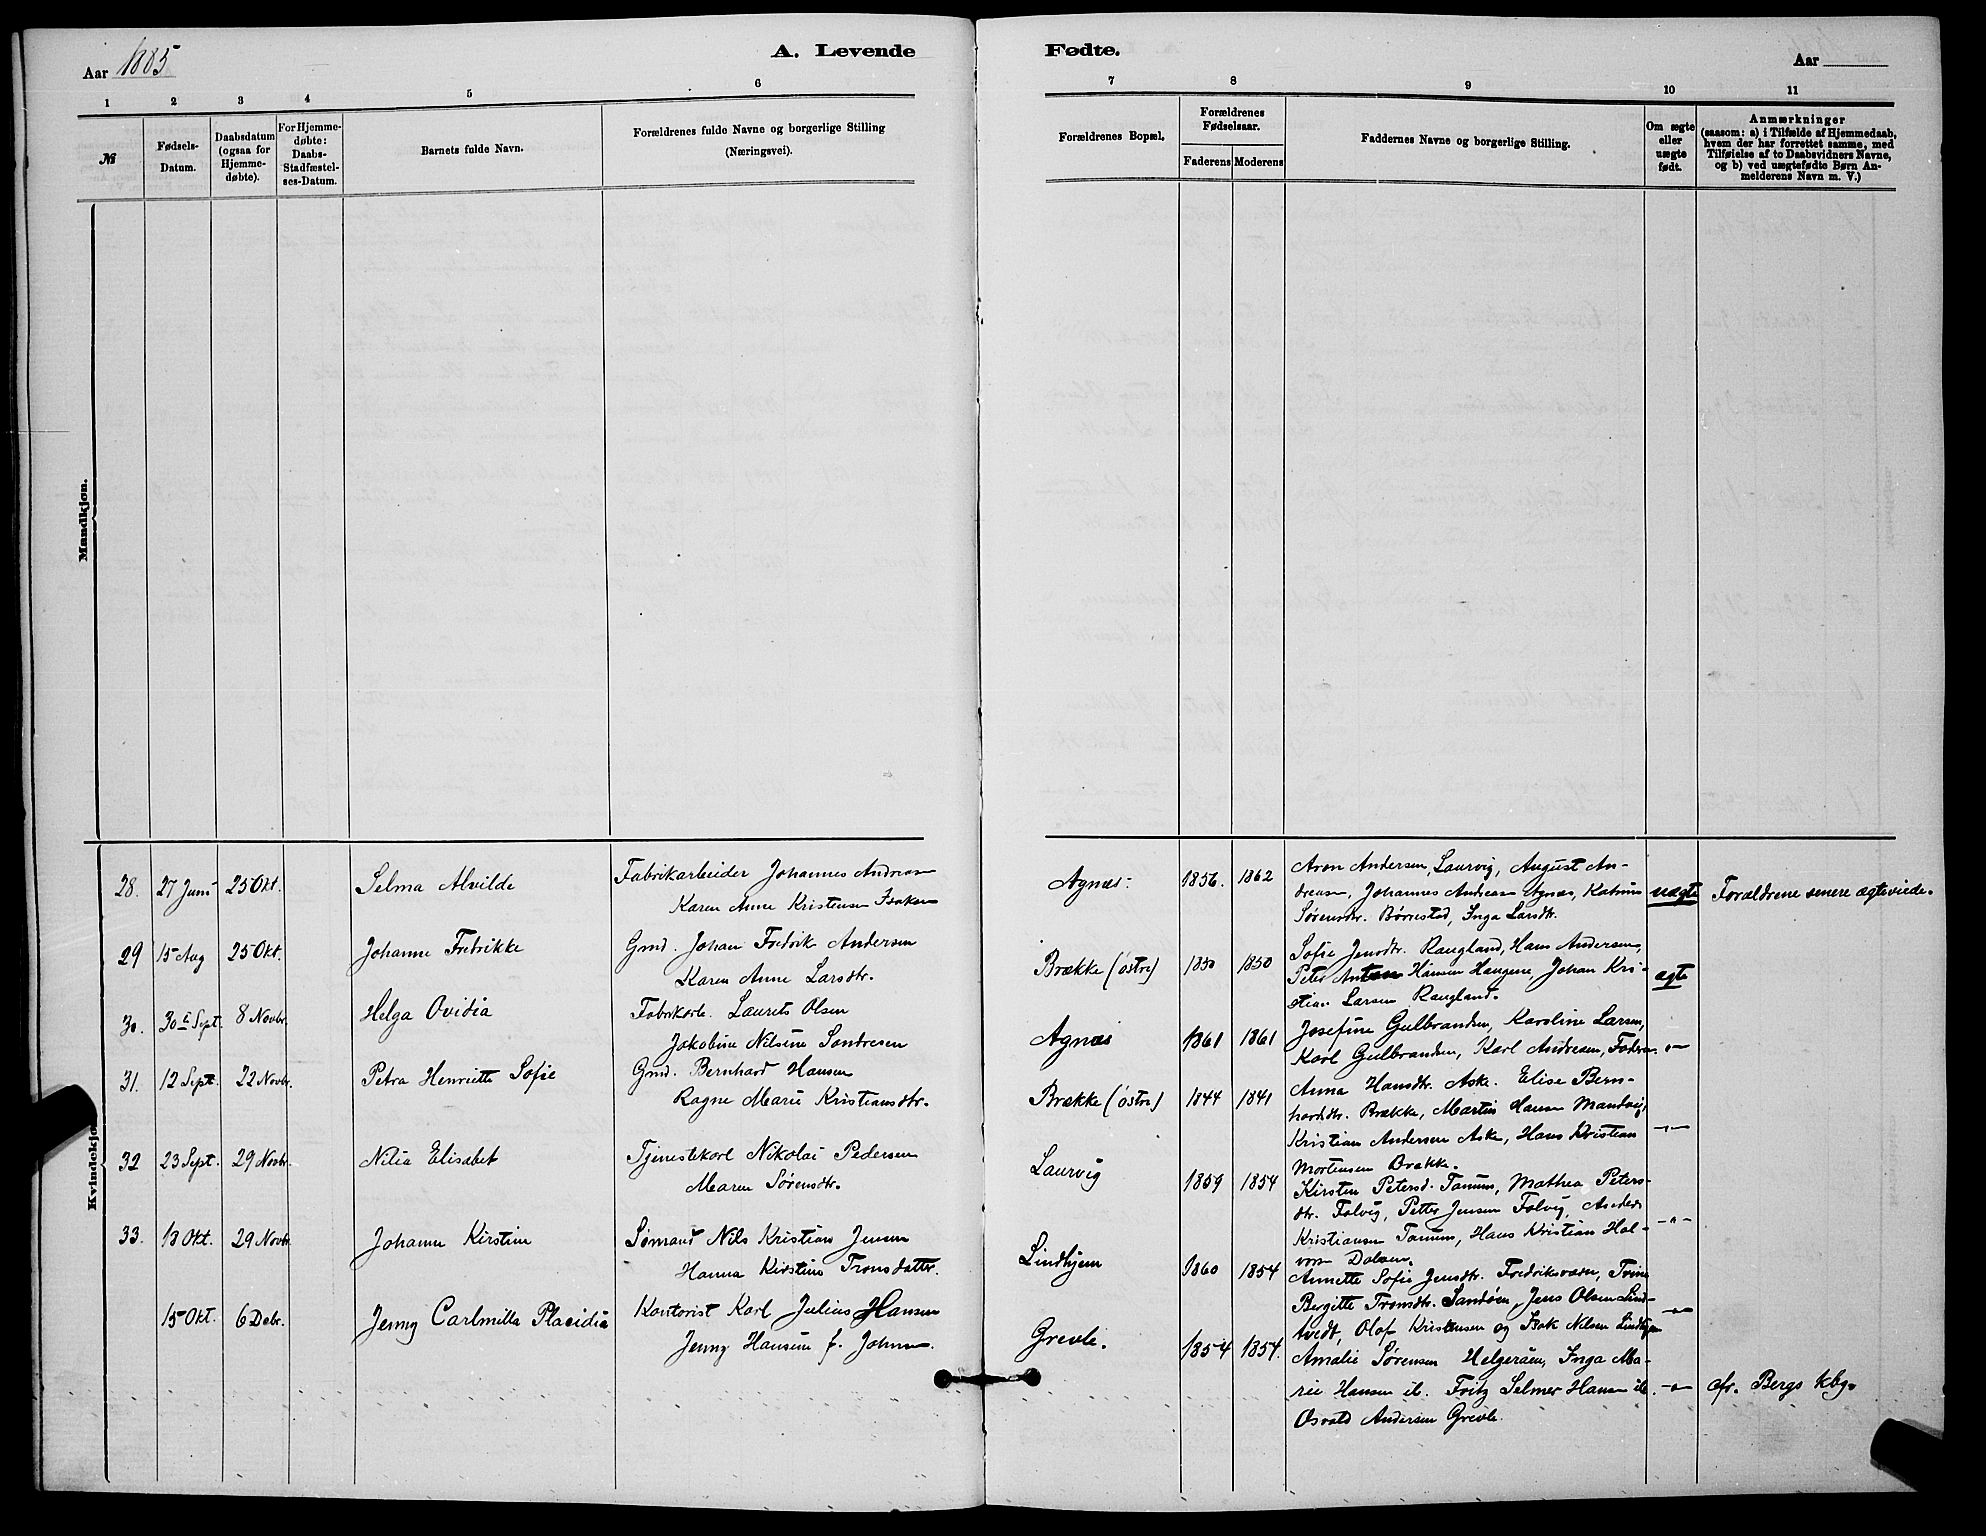 Aar 1885
A. Levende Fødte.
Aar
1 2 3 4 5 6 7 8 9 10 11
№
Fødsels-
Datum.
Daabsdatum
(ogsaa for
Hjemme-
døbte).
For Hjemme-
døbte:
Daabs-
Stadfæstel-
ses-Datum.
Barnets fulde Navn.
Forældrenes fulde Navne og borgerlige Stilling
(Næringsvei).
Forældrenes Bopæl.
Forældrenes
Fødselsaar.
Faderens Moderens
Faddernes Navne og borgerlige Stilling.
Om ægte
eller
uægte
født.
Anmærkninger
(saasom: a) i Tilfælde af Hjemmedaab,
hvem der har forrettet samme, med
Tilføielse af to Daabsvidners Navne,
og b) ved uægtefødte Børn An-
melderens Navn m. V.)
Mandkjøn.
Kvindekjøn.
28. 27 Juni 25 Okt. Selma Alvilde
Fabrikarbeider Johannes Andreas
Karen Anne Kristensen
Agnæs. 1856. 1862
Aron Andersen, Laurvig, August An-
dresen, Johannes Andresen Agnæs, Katrine
Sørensdtr. Børrestad, Inga Larsdtr.
uægte Forældrene senere ægteviede.
29 15 Aug 25 Okt. Johanne Fredrikke
Gmd. Johan Fredrik Andersen
Karen Anne Larsdtr.
Brække (østre) 1850 1850
Sofie Jensdtr. Raugland, Hans Andersen,
Peter Anton Hansen Haugene, Johan Kri-
stian Larsen Raugland.
ægte
30. 30te Sept. 8 Novbr. Helga Ovidia
Fabrikarb. Laurits Olsen
Jakobine Nilsine Søndresen
Agnæs 1861 1861
Josefine Gulbrandsen, Karoline Larsen,
Karl Gulbrandsen, Karl Andresen, Faderen.
-"-
31. 12 Sept. 22 Novbr. Petra Henriette Sofie
Gmd. Bernhard Hansen
Ragne Marie Kristiansdtr.
Brække (østre) 1844 1841
Anna Hansdtr. Aske. Elise Bern-
hardsdtr. Brække, Martin Hansen Mandvig,
Kristian Andersen Aske, Hans Kristian
Mortensen Brække.
-"-
32 23 Sept. 29 Novbr. Nilia Elisabet
Tjenestekarl Nikolai Pedersen
Maren Sørensdtr.
Laurvig 1859 1854
Kirsten Petersd. Tanum, Mathea Peters-
dtr. Falvig, Petter Jensen Falvig, Anders
Kristiansen Tanum, Hans Kristian Hal-
vors. Dolven.
-"-
33. 13 Okt. 29 Novbr. Johanne Kirstine
Sømand Nils Kristian Jensen
Hanna Kirstine Tronsdatter.
Lindhjem 1860 1854
Annette Sofie Jensdtr. Fredriksværn, Trine
Bergitte Tronsdtr. Sandøen, Jens Olsen Lind-
tvedt, Olof Kristensen og Isak Nilsen Lindhjem
-"-
15 Okt. 6 Debr. Jenny Carlmilla Placidia
Kontorist Karl Julius Hansen
Jenny Hansen f. Johnsen.
Grevle. 1854 1854.
Amalie Sørensen Helgeråen, Inga Ma-
rie Hansen ib. Fritz Selmer Hansen ib.
Osvald Andersen Grevle.
-"- cfr. Bergs kbg.